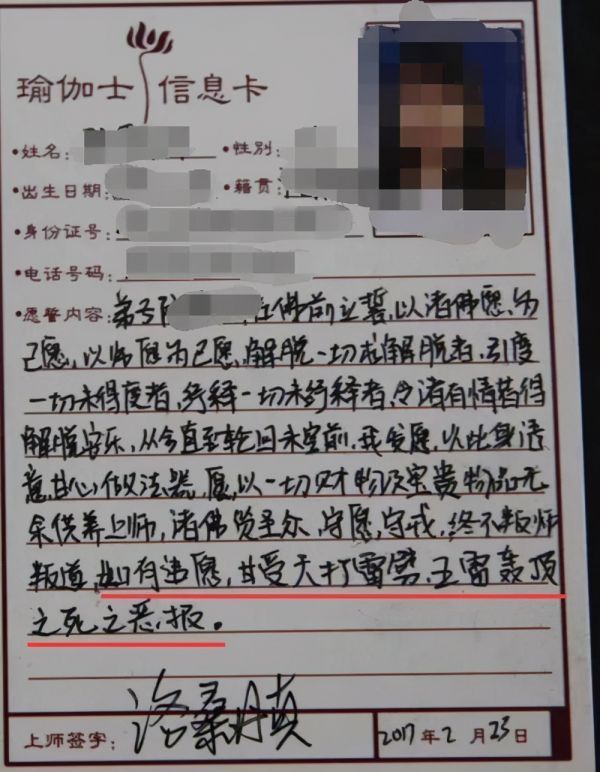 瑜伽士 信息卡
•姓名: •性别:
•出生日期: •籍贯:
•身份证号:
•电话号码:
•愿誓内容: 弟子 在佛前立誓,以诸佛愿为
己愿,以师愿为己愿,解脱一切未解脱者,引度
一切未得度者,终释一切未终释者,令诸有情若得
解脱安乐,从今直至轮回未空前,我发愿,以此身语
意,甘心做法器,愿以一切财物及宝贵物品无
余供养上师,诸佛贤圣尔,守愿,守戒,终不叛师
叛道,如有违愿,甘受天打雷劈,五雷轰顶
之死之恶报。
上师签字: 洛桑丹真 2017年2月23日